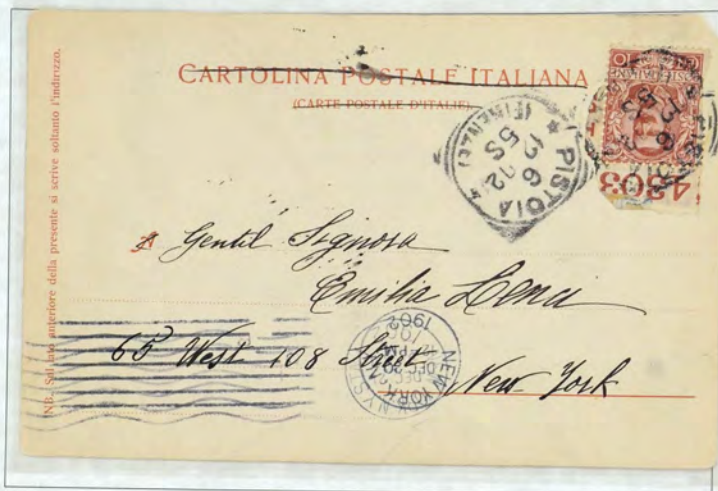 CARTOLINA POSTALE ITALIANA
(CARTE POSTALE D'ITALIE)
NB. Sul lato anteriore della presente si scrive soltanto l'indirizzo.
4303
PISTOIA
(FIRENZE)
12 6 02
5S
A Gentil Signora
Emilia Lena
65 West 108 Street
New York
NEW YORK, N.Y. STA.
DEC
1902